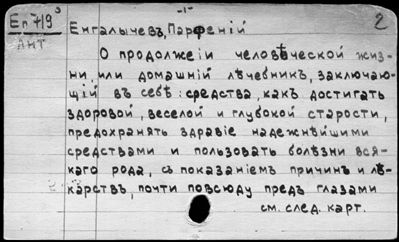 Еп 7/9 3 -1- 2
АНТ Енгалычевъ, Парфеній
О продолжеіи человѣческой жиз-
ни, или домашній лѣчебникъ, заключаю-
щій въ себѣ: средства, какъ достигать
здоровой, веселой и глубокой старости,
предохранять здравіе надежнѣйшими
средствами и пользовать болѣзни вся-
каго рода, съ показаніемъ причинъ и лѣ-
карствъ, почти повсюду предъ глазами
см. след. карт.